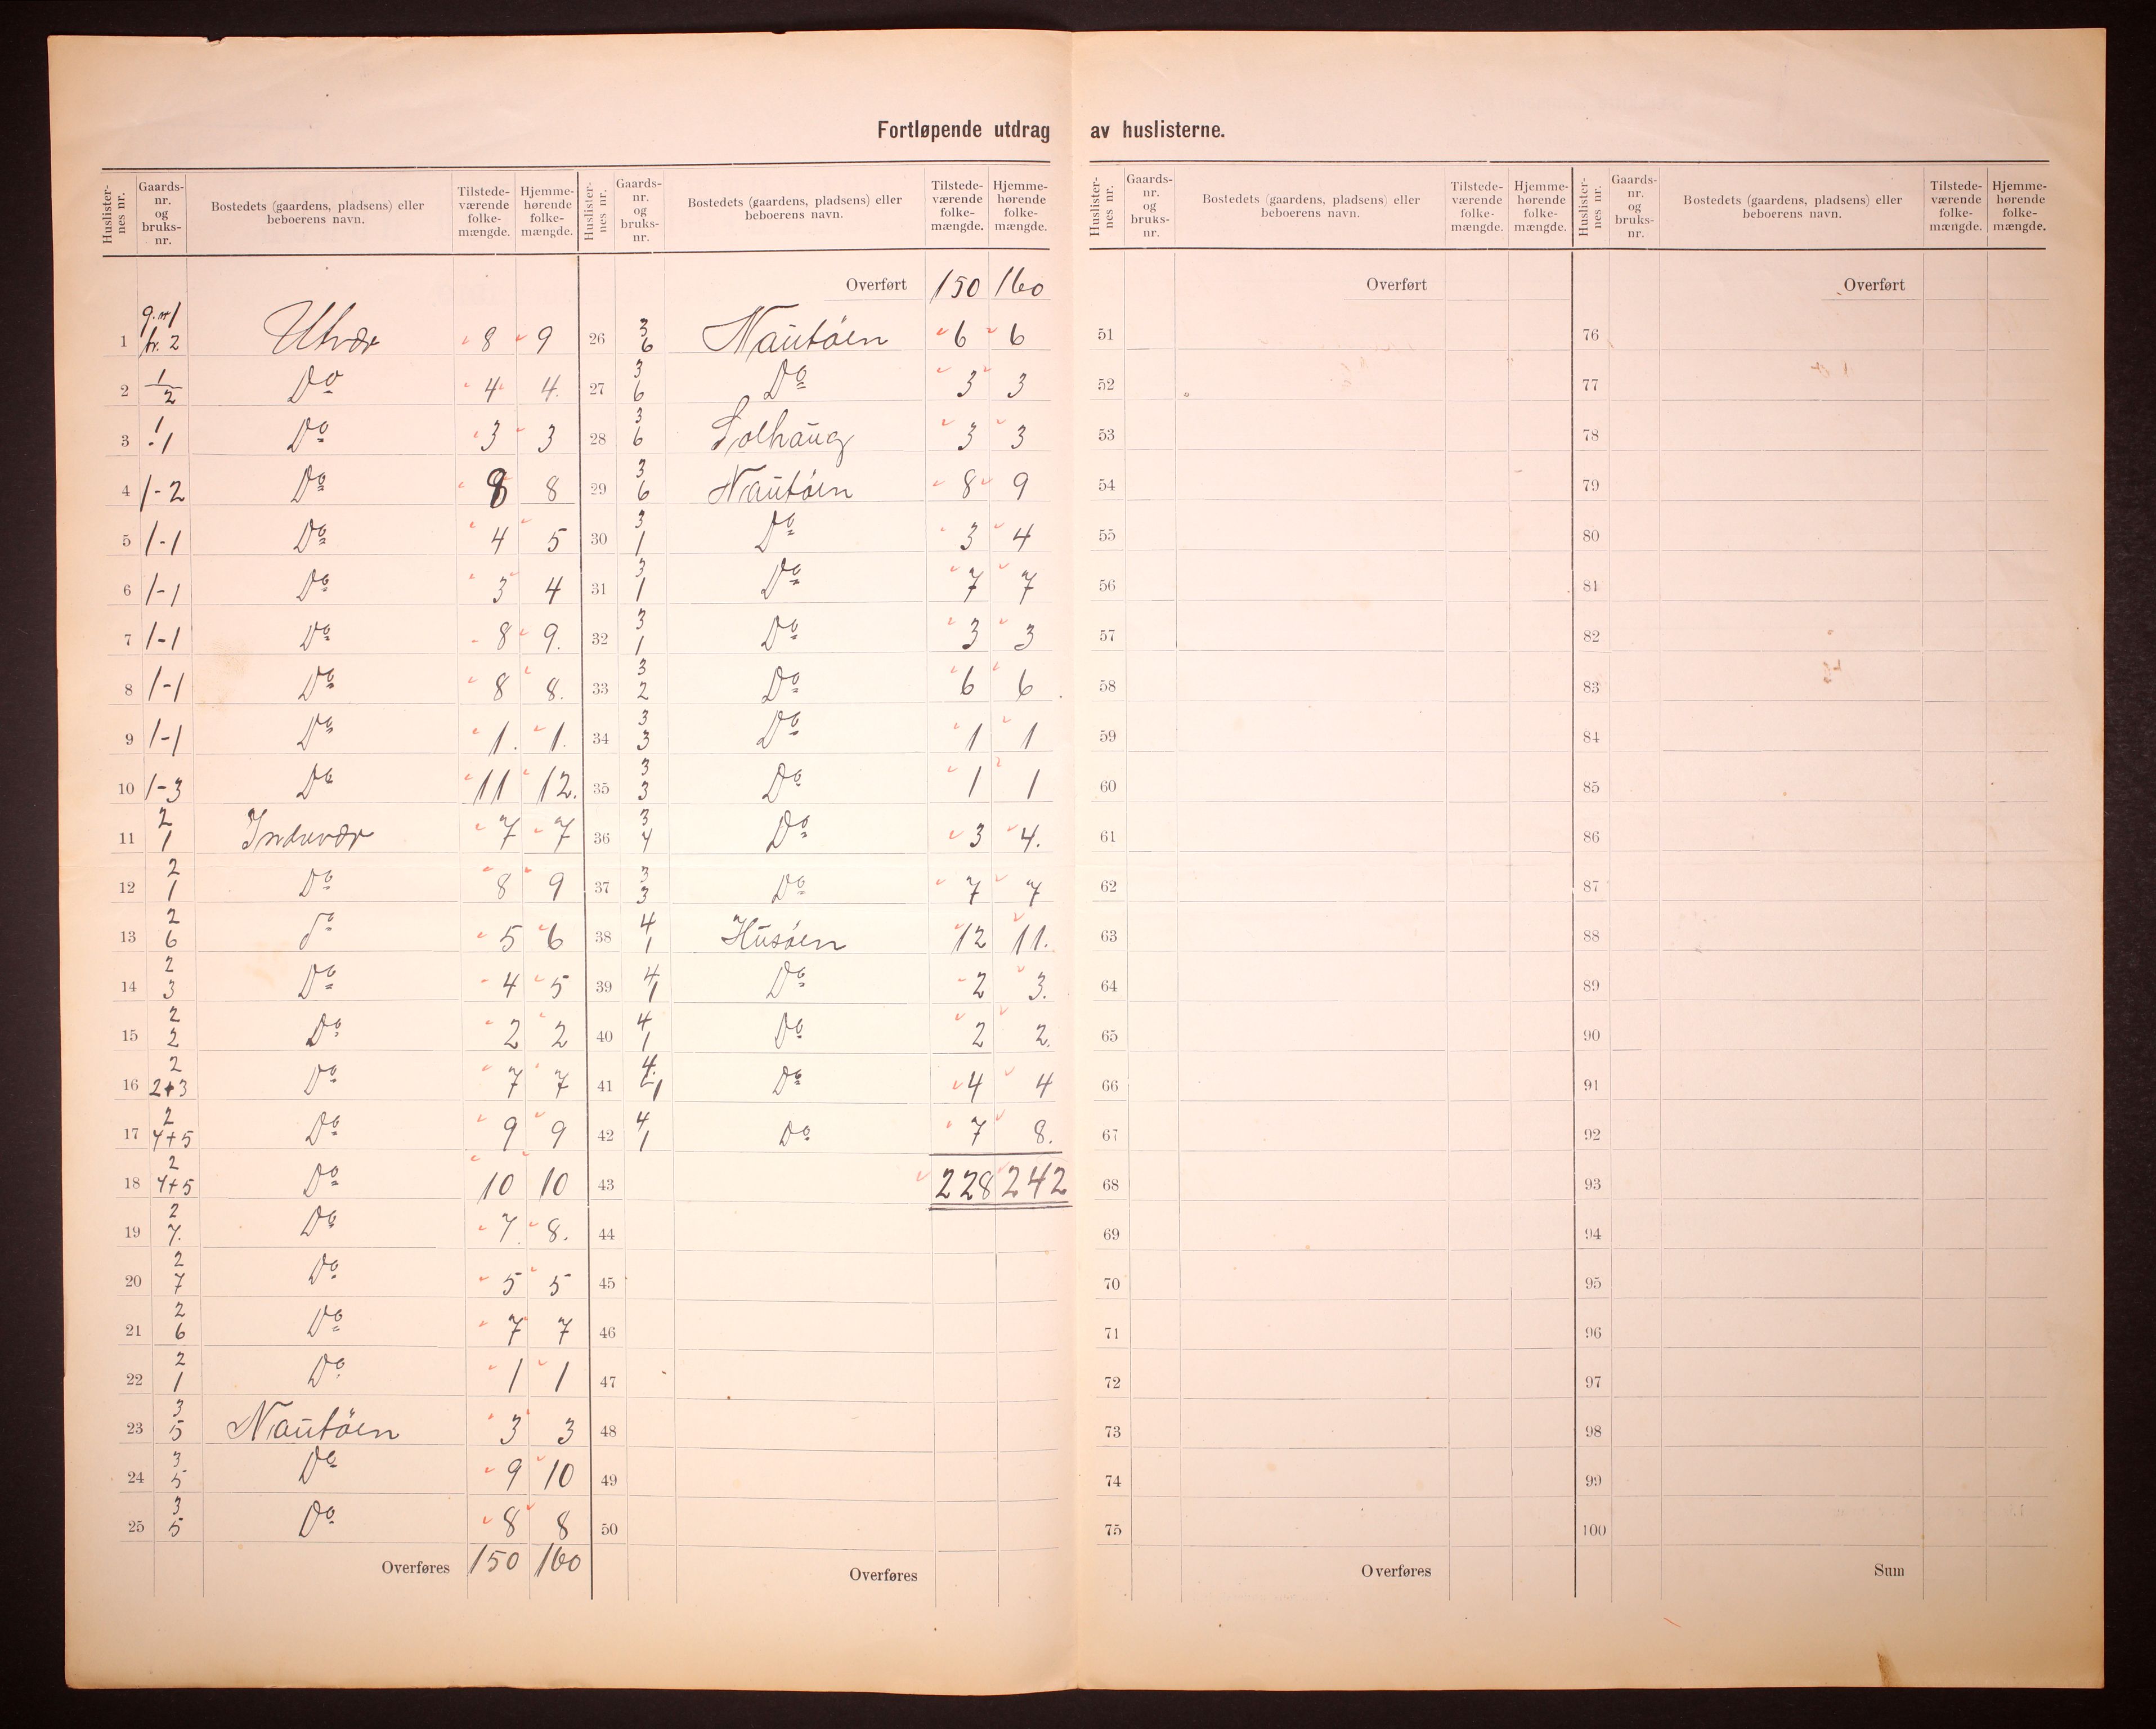 Fortløpende utdrag av huslisterne.
Huslister-nes nr. | Gaards-nr. og bruks-nr. | Bostedets (gaardens, pladsens) eller beboerens navn. | Tilstede-værende folke-mængde. | Hjemme-hørende folke-mængde.
1 g.nr 1 br. 2 Utvær 8 9
2 1/2 Do 4 4.
3 1 1 Do 3 3
4 1-2 Do 8 8
5 1-1 Do 4 5
6 1-1 Do 3 4
7 1-1 Do 8 9.
8 1-1 Do 8 8.
9 1-1 Do 1. 1.
10 1-3 Do 11 12.
11 2 1 Indrevær 7 7
12 2 1 Do 8 9
13 2 6 do 5 6
14 2 3 Do 4 5
15 2 2 Do 2 2
16 2 2+3 Do 7 7
17 2 4+5 Do 9 9
18 2 4+5 Do 10 10
19 2 7. Do 7. 8.
20 2 7 Do 5 5
21 2 6 Do 7 7
22 2 1 Do 1 1
23 3 5 Nautöen 3 3
24 3 5 Do 9 10
25 3 5 Do 8 8
Overføres 150 160
Huslister-nes nr. | Gaards-nr. og bruks-nr. | Bostedets (gaardens, pladsens) eller beboerens navn. | Tilstede-værende folke-mængde. | Hjemme-hørende folke-mængde.
Overført 150 160
26 3 6 Nautöen 6 6
27 3 6 Do 3 3
28 3 6 Solhaug 3 3
29 3 6 Nautöen 8 9
30 3 1 Do 3 4
31 3 1 Do 7 7
32 3 1 Do 3 3
33 3 2 Do 6 6
34 3 3 Do 1 1
35 3 3 Do 1 1
36 3 4 Do 3 4.
37 3 3 Do 7 7
38 4 1 Husöen 12 11.
39 4 1 Do 2 3.
40 4 1 Do 2 2.
41 4. 1 Do 4 4
42 4 1 Do 7 8.
43 228 242
44
45
46
47
48
49
50
Overføres
Huslister-nes nr. | Gaards-nr. og bruks-nr. | Bostedets (gaardens, pladsens) eller beboerens navn. | Tilstede-værende folke-mængde. | Hjemme-hørende folke-mængde.
Overført
51
52
53
54
55
56
57
58
59
60
61
62
63
64
65
66
67
68
69
70
71
72
73
74
75
Overføres
Huslister-nes nr. | Gaards-nr. og bruks-nr. | Bostedets (gaardens, pladsens) eller beboerens navn. | Tilstede-værende folke-mængde. | Hjemme-hørende folke-mængde.
Overført
76
77
78
79
80
81
82
83
84
85
86
87
88
89
90
91
92
93
94
95
96
97
98
99
100
Sum